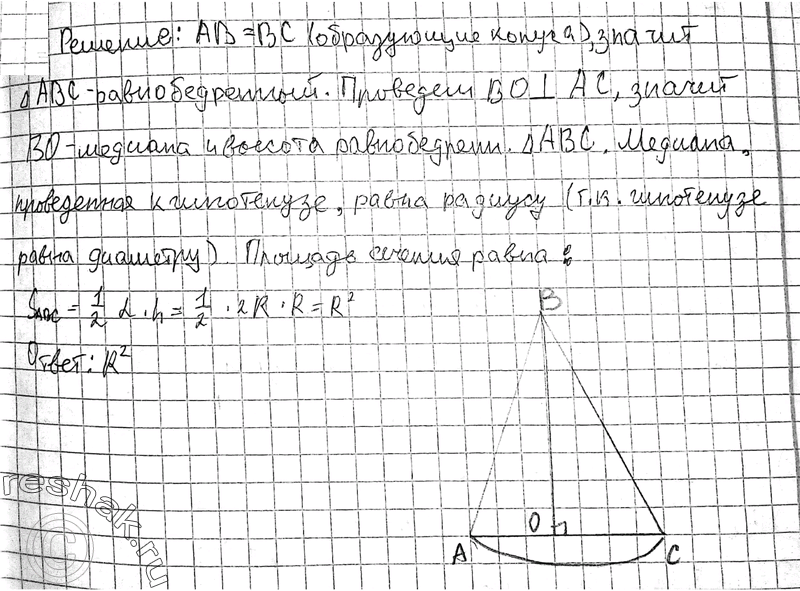 Решение: AB = BC (образующие конуса), значит
△ABC - равнобедренный. Проведем BO⊥ AC, значит
BO - медиана и высота равнобедренн. △ABC. Медиана,
проведенная к гипотенузе, равна радиусу (т.к. гипотенузе
равна диаметру). Площадь сечения равна:
S_ABC = 1/2 d · h = 1/2 · 2R · R = R²
Ответ: R²
B
O
A
C
reshak.ru
©